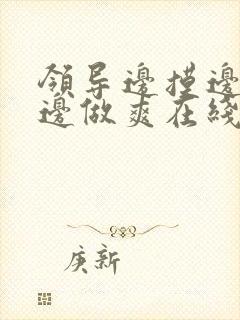 領导邊摸邊
邊做爽在綫
庚新